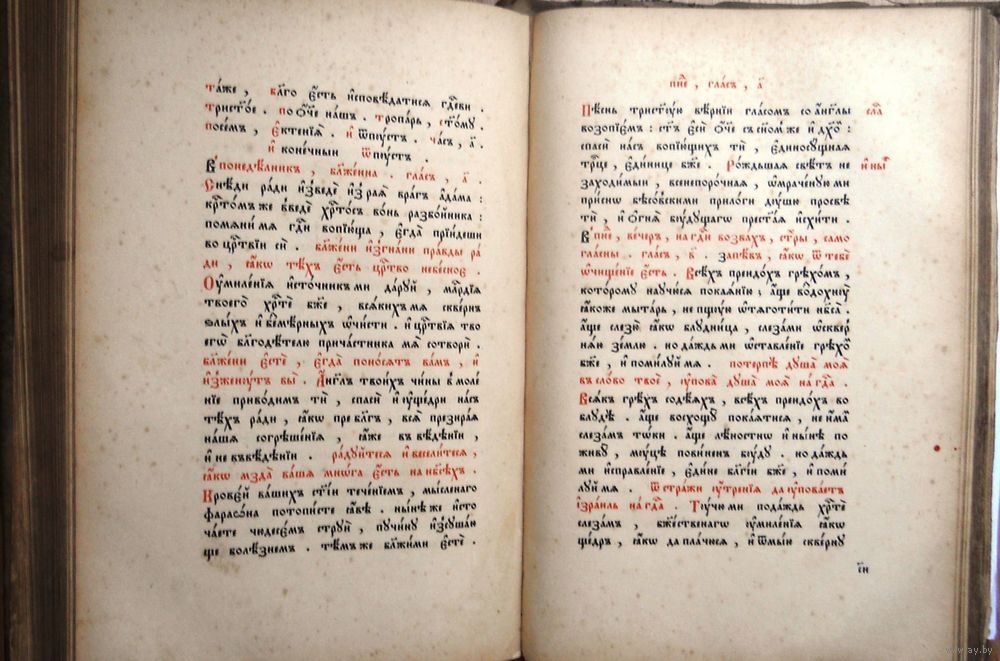 таже , бл҃го є҆сть и҆сповѣдатисѧ гд҇еви .
трист҃ое . по ѻ҆́ч҃е на́шъ . тропа́рь , ст҃о́мꙋ .
посе́мъ , є҆ктенїѧ̀ . и҆ ѿпꙋ́стъ . ча́съ , а҃ .
и҆ коне́чный ѿпꙋ́стъ .
В̾ понедѣ́лникъ , бл҃же́нна . гла́съ , а҃ .
Снѣ́ди ра́ди и҆зведѐ и҆зра́ѧ вра́гъ а҆да́ма :
крⷭ҇то́мъ же введѐ хрⷭ҇то́съ во́нь разбо́йника :
помѧни́ мѧ гдⷭ҇и вопїю́ща , є҆гда̀ прїи́деши
во црⷭ҇твїи сѝ . бл҃же́ни и҆згна́ни пра́вды ра
ди , ꙗ҆́кѡ тѣ́хъ є҆́сть црⷭ҇тво небе́сное .
Оу҆миле́нїѧ и҆сто́чникъ ми да́рꙋй , млⷭ҇рдїѧ
твоегѡ̀ хрⷭ҇тѐ бж҃е , всѧ́кихъ мѧ скве́рнъ
ѕлы́хъ и҆ безмѣ́рныхъ ѡ҆чи́сти . и҆ црⷭ҇твїѧ тво
егѡ̀ бл҃годѣ́телю прича́стника мѧ̀ сотворѝ .
бл҃же́ни є҆стѐ , є҆гда̀ поно́сѧтъ ва́мъ , и҆
и҆зженꙋ́тъ вы̀ . А҆́нг҃лъ твои́хъ чи́ны в̾ моле́
нїе приво́димъ тѝ , спасѝ и҆ ᲂу҆ще́дри на́съ
тѣ́хъ ра́ди , ꙗ҆́кѡ пребл҃гъ , всѧ̀ презира́ѧ
на́шѧ согрѣше́нїѧ , ꙗ҆́же въ вѣ́дѣнїи ,
и҆ не въ вѣ́дѣнїи . ра́дꙋйтесѧ и҆ весели́тесѧ ,
ꙗ҆́кѡ мзда̀ ва́шѧ мно́га є҆́сть на нб҃сѣ́хъ .
Крове́й ва́шихъ ст҃і́и тече́нїемъ , мы́сленаго
фараѡ́на потопи́сте ꙗ҆́вѣ . ны́нѣ же и҆сто
ча́ете чюдесе́мъ стрꙋи̑ , пꙋчи́нꙋ и҆зсꙋша́ю
ще болѣ́знемъ . тѣ́мъ же бл҃же́ми є҆стѐ .
пнⷣе , гла́съ , а҃
Пѣ́снь трист҃ꙋ́ю вѣ́рнїи гла́сомъ со а҆́нг҃лы сла́
возопїе́мъ : ст҃ъ є҆сѝ ѻ҆́ч҃е съ сн҃омъ же и҆ дх҃о́ :
спасѝ на́съ вопїю́щихъ тѝ , є҆диносꙋ́щнаѧ
трⷪ҇це , є҆ди́нице бж҃е . Ро́ждшаѧ свѣ́тъ не и҆ ны́
заходи́мыи , всенепоро́чнаѧ , ѡ҆мраче́нꙋю ми
при́сно бѣсо́вскими прило́ги дꙋ́шю просвѣ
тѝ , и҆ ѻ҆гнѧ̀ бꙋ́дꙋщагѡ прест҃а́ѧ и҆схи́ти .
В̾ пнⷣе , ве́черъ , на гдⷭ҇и возва́хъ , стр҃ы , само
гла́сны . гла́съ , в҃ . запѣ́въ , ꙗ҆́кѡ ѿ тебѐ
ѡ҆чище́нїе є҆́сть . Всѣ́хъ преидо́хъ грѣхо́мъ ,
кото́рому наꙋчи́сѧ покаѧ́нїю ; а҆́ще в̾здохнꙋ̀
ꙗ҆́коже мыта́рь , не пщꙋ́и ѡ҆тѧготи́ти нб҃са̀ .
а҆́ще слезю̀ ꙗ҆́кѡ блꙋдни́ца , слеза́ми ѡ҆сквер
нѧ́ю зе́млю . но да́ждь ми ѡ҆ставле́нїе грѣхо́
бж҃е , и҆ поми́лꙋй мѧ . потерпѣ̀ дꙋша̀ моѧ̀
въ сло́во твоѐ , ᲂу҆пова̀ дꙋша̀ моѧ̀ на гдⷭ҇а .
Всѧ́къ грѣ́хъ содѣ́ѧхъ , всѣ́хъ преидо́хъ во
блꙋ́дѣ . а҆́ще восхощꙋ̀ покаѧ́тисѧ , не и҆́мамъ
слеза́мъ то́ки . а҆́ще лѣ́ностнѡ и҆ ны́нѣ по
живꙋ̀ , мꙋ́цѣ пови́ненъ бꙋ́дꙋ . но да́ждь
ми и҆справле́нїе , є҆ди́не бл҃гі́и бж҃е , и҆ поми́
лꙋй мѧ . ѿ стра́жи ᲂу҆́тренїѧ да ᲂу҆пова́етъ
і҆зра́иль на гдⷭ҇а . Тꙋ́чю ми пода́ждь хрⷭ҇тѐ
слеза́мъ , бж҃е́ственагѡ ᲂу҆миле́нїѧ ꙗ҆́кѡ
ще́дръ , ꙗ҆́кѡ да пла́чюсѧ , и҆ ѿмы́ю скве́рнꙋ
сн
www.ay.by